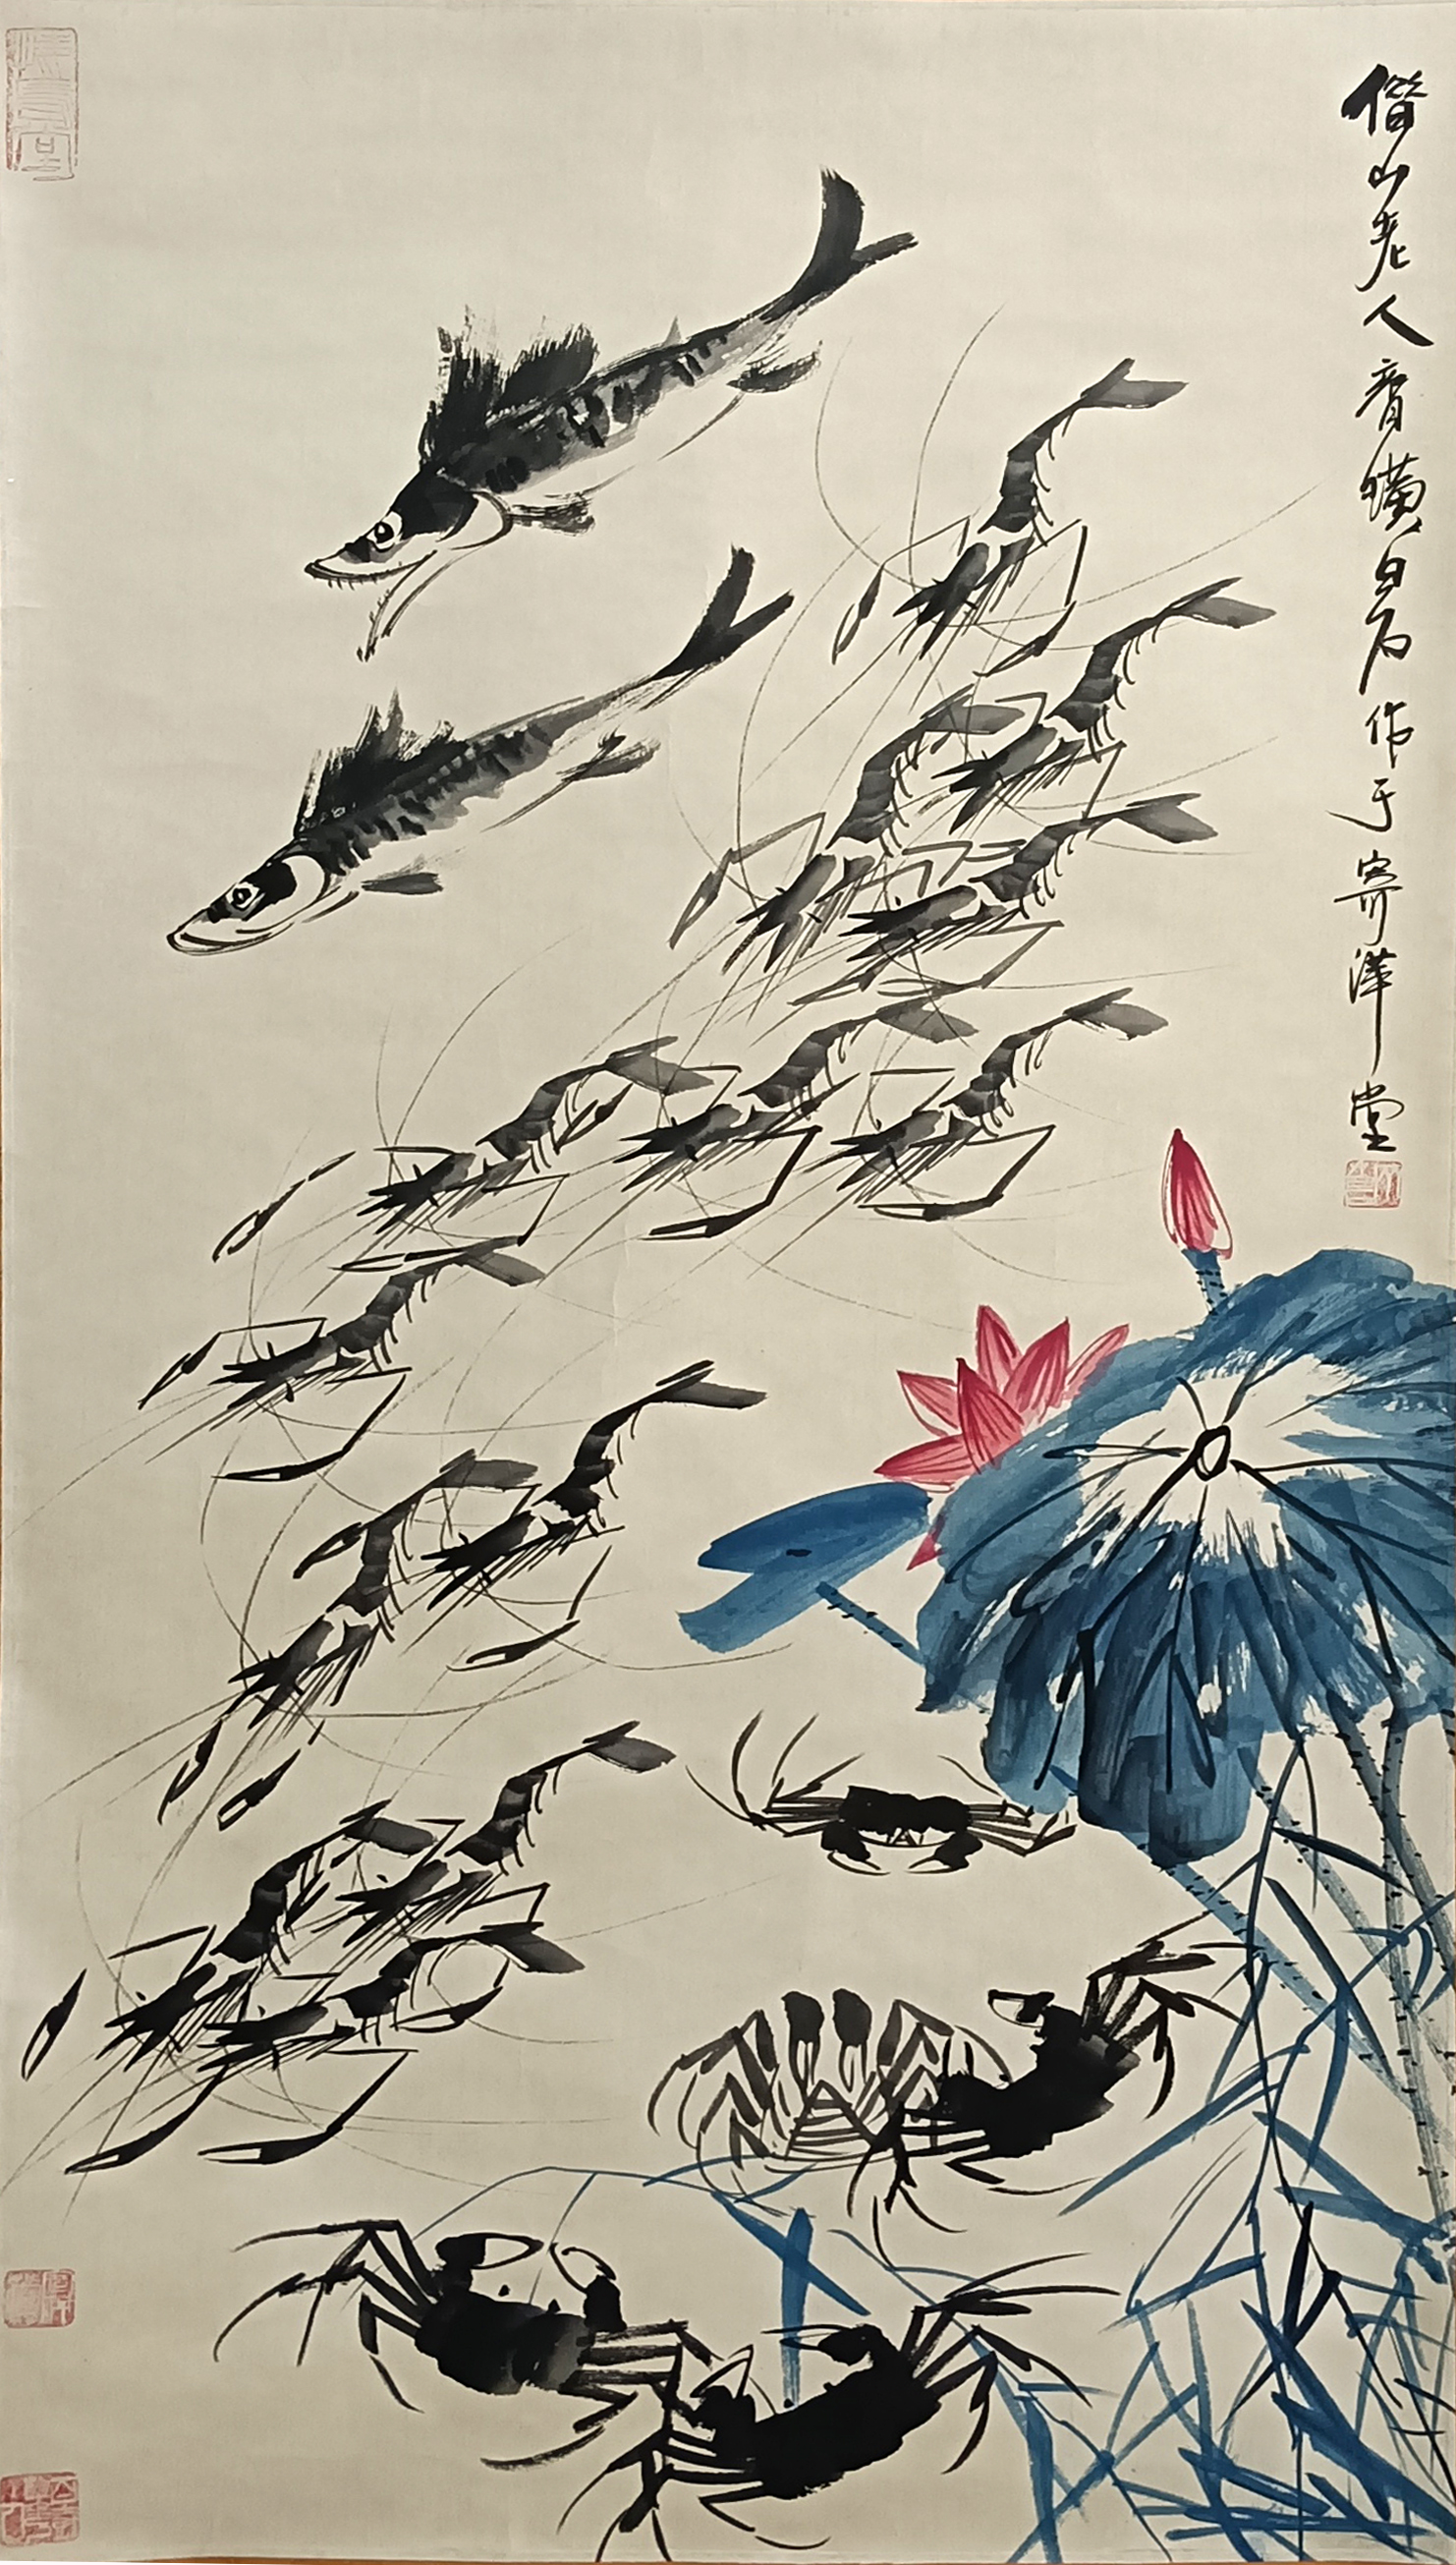 借山老人齊璜白石作于寄萍堂